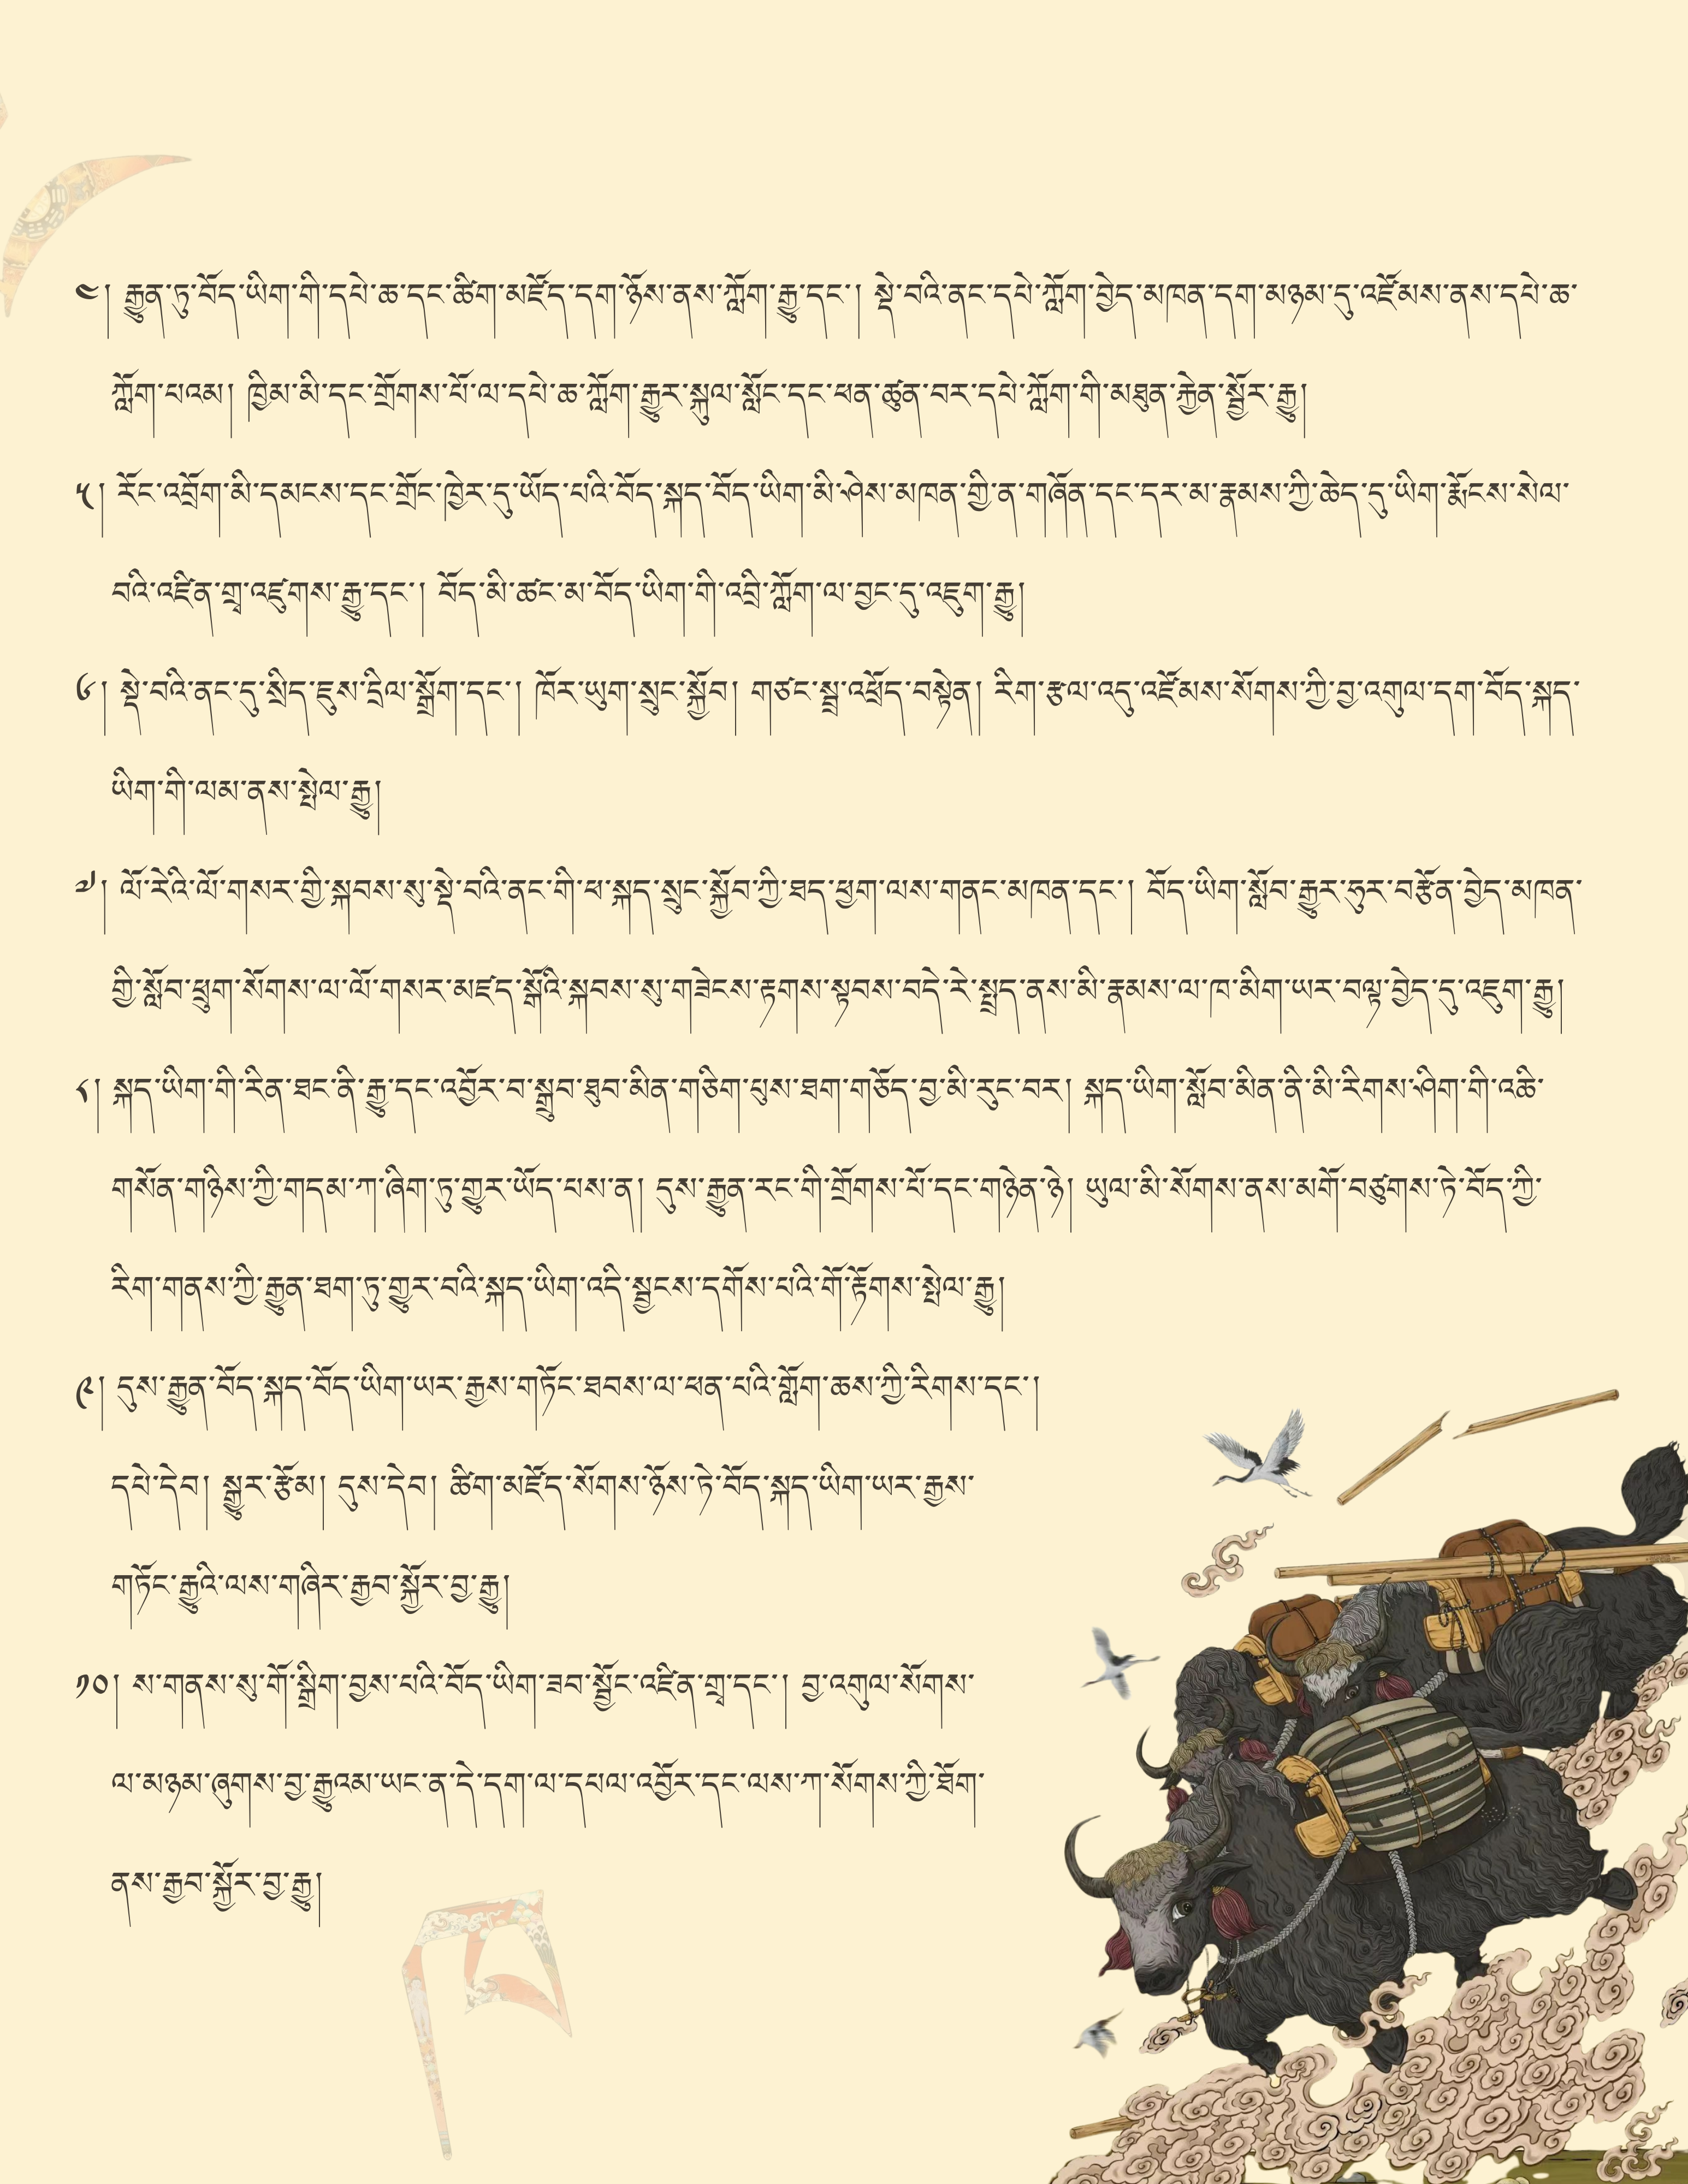 ༤། རྒྱུན་ཏུ་བོད་ཡིག་གི་དཔེ་ཆ་དང་ཚིག་མཛོད་དག་ཉོས་ནས་ཀློག་རྒྱུ་དང་། སྡེ་བའི་ནང་དཔེ་ཀློག་བྱེད་མཁན་དག་མཉམ་དུ་འཛོམས་ནས་དཔེ་ཆ་
ཀློག་པའམ། ཁྱིམ་མི་དང་གྲོགས་པོ་ལ་དཔེ་ཆ་ཀློག་རྒྱུར་སྐུལ་སློང་དང་ཕན་ཚུན་བར་དཔེ་ཀློག་གི་མཐུན་རྐྱེན་སྦྱོར་རྒྱུ།
༥། རོང་འབྲོག་མི་དམངས་དང་གྲོང་ཁྱེར་དུ་ཡོད་པའི་བོད་སྐད་བོད་ཡིག་མི་ཤེས་མཁན་གྱི་ན་གཞོན་དང་དར་མ་རྣམས་ཀྱི་ཆེད་དུ་ཡིག་རྨོངས་སེལ་
བའི་འཛིན་གྲྭ་འཛུགས་རྒྱུ་དང་། བོད་མི་ཚང་མ་བོད་ཡིག་གི་འབྲི་ཀློག་ལ་བྱང་དུ་འཇུག་རྒྱུ།
༦། སྡེ་བའི་ནང་དུ་སྲིད་ཇུས་དྲིལ་སྒྲོག་དང་། ཁོར་ཡུག་སྲུང་སྐྱོབ། གཙང་སྦྲ་འཕྲོད་བསྟེན། རིག་རྩལ་འདུ་འཛོམས་སོགས་ཀྱི་བྱ་འགུལ་དག་བོད་སྐད་
ཡིག་གི་ལམ་ནས་སྤེལ་རྒྱུ།
༧། ལོ་རེའི་ལོ་གསར་གྱི་སྐབས་སུ་སྡེ་བའི་ནང་གི་ཕ་སྐད་སྲུང་སྐྱོབ་ཀྱི་ཐད་ཕྱག་ལས་གནང་མཁན་དང་། བོད་ཡིག་སློབ་རྒྱུར་ཧུར་བརྩོན་བྱེད་མཁན་
གྱི་སློབ་ཕྲུག་སོགས་ལ་ལོ་གསར་མཛད་སྒོའི་སྐབས་སུ་གཟེངས་རྟགས་སྟབས་བདེ་རེ་སྤྲད་ནས་མི་རྣམས་ལ་ཁ་མིག་ཡར་བལྟ་བྱེད་དུ་འཇུག་རྒྱུ།
༨། སྐད་ཡིག་གི་རིན་ཐང་ནི་རྒྱུ་དང་འབྱོར་བ་སྒྲུབ་ཐུབ་མིན་གཅིག་པུས་ཐག་གཅོད་བྱ་མི་རུང་བར། སྐད་ཡིག་སློབ་མིན་ནི་མི་རིགས་ཤིག་གི་འཆི་
གསོན་གཉིས་ཀྱི་གདམ་ཀ་ཞིག་ཏུ་གྱུར་ཡོད་པས་ན། དུས་རྒྱུན་རང་གི་གྲོགས་པོ་དང་གཉེན་ཉེ། ཡུལ་མི་སོགས་ནས་མགོ་བཙུགས་ཏེ་བོད་ཀྱི་
རིག་གནས་ཀྱི་རྒྱུན་ཐག་ཏུ་གྱུར་བའི་སྐད་ཡིག་འདི་སྦྱངས་དགོས་པའི་གོ་རྟོགས་སྤེལ་རྒྱུ།
༩། དུས་རྒྱུན་བོད་སྐད་བོད་ཡིག་ཡར་རྒྱས་གཏོང་ཐབས་ལ་ཕན་པའི་གློག་ཆས་ཀྱི་རིགས་དང་།
དཔེ་དེབ། སྒྱུར་རྩོམ། དུས་དེབ། ཚིག་མཛོད་སོགས་ཉོས་ཏེ་བོད་སྐད་ཡིག་ཡར་རྒྱས་
གཏོང་རྒྱུའི་ལས་གཞིར་རྒྱབ་སྐྱོར་བྱ་རྒྱུ།
༡༠། ས་གནས་སུ་གོ་སྒྲིག་བྱས་པའི་བོད་ཡིག་ཟབ་སྦྱོང་འཛིན་གྲྭ་དང་། བྱ་འགུལ་སོགས་
ལ་མཉམ་ཞུགས་བྱ་རྒྱུའམ་ཡང་ན་དེ་དག་ལ་དཔལ་འབྱོར་དང་ལས་ཀ་སོགས་ཀྱི་ཐོག་
ནས་རྒྱབ་སྐྱོར་བྱ་རྒྱུ།